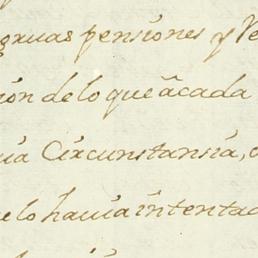 pensiones y
ion de lo que ăcada
Circunstansia,
lo hauia intentad